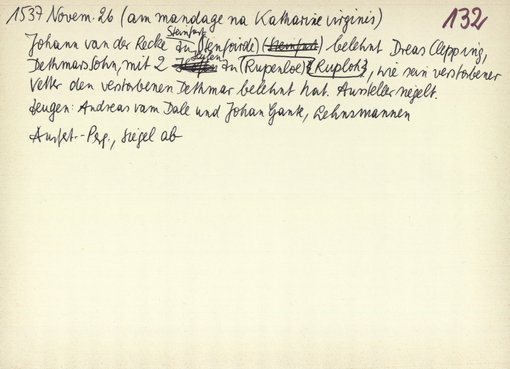 1537 Novem. 26 (am mandage na Katharine virginis) 132
Johann van der Recke zu Steinfurt (Stenforde) (Steinfurt) belehnt Dreas Clepping,
Dethmars Sohn, mit 2 Höfen zu (Rupenloe) (Ruploh), wie sein verstorbener
Vetter den verstorbenen Dethmar belehnt hat. Aussteller siegelt.
Zeugen: Andreas vam Dale und Johan Gank, Lehnsmannen
Ausf.-Perg., Siegel ab